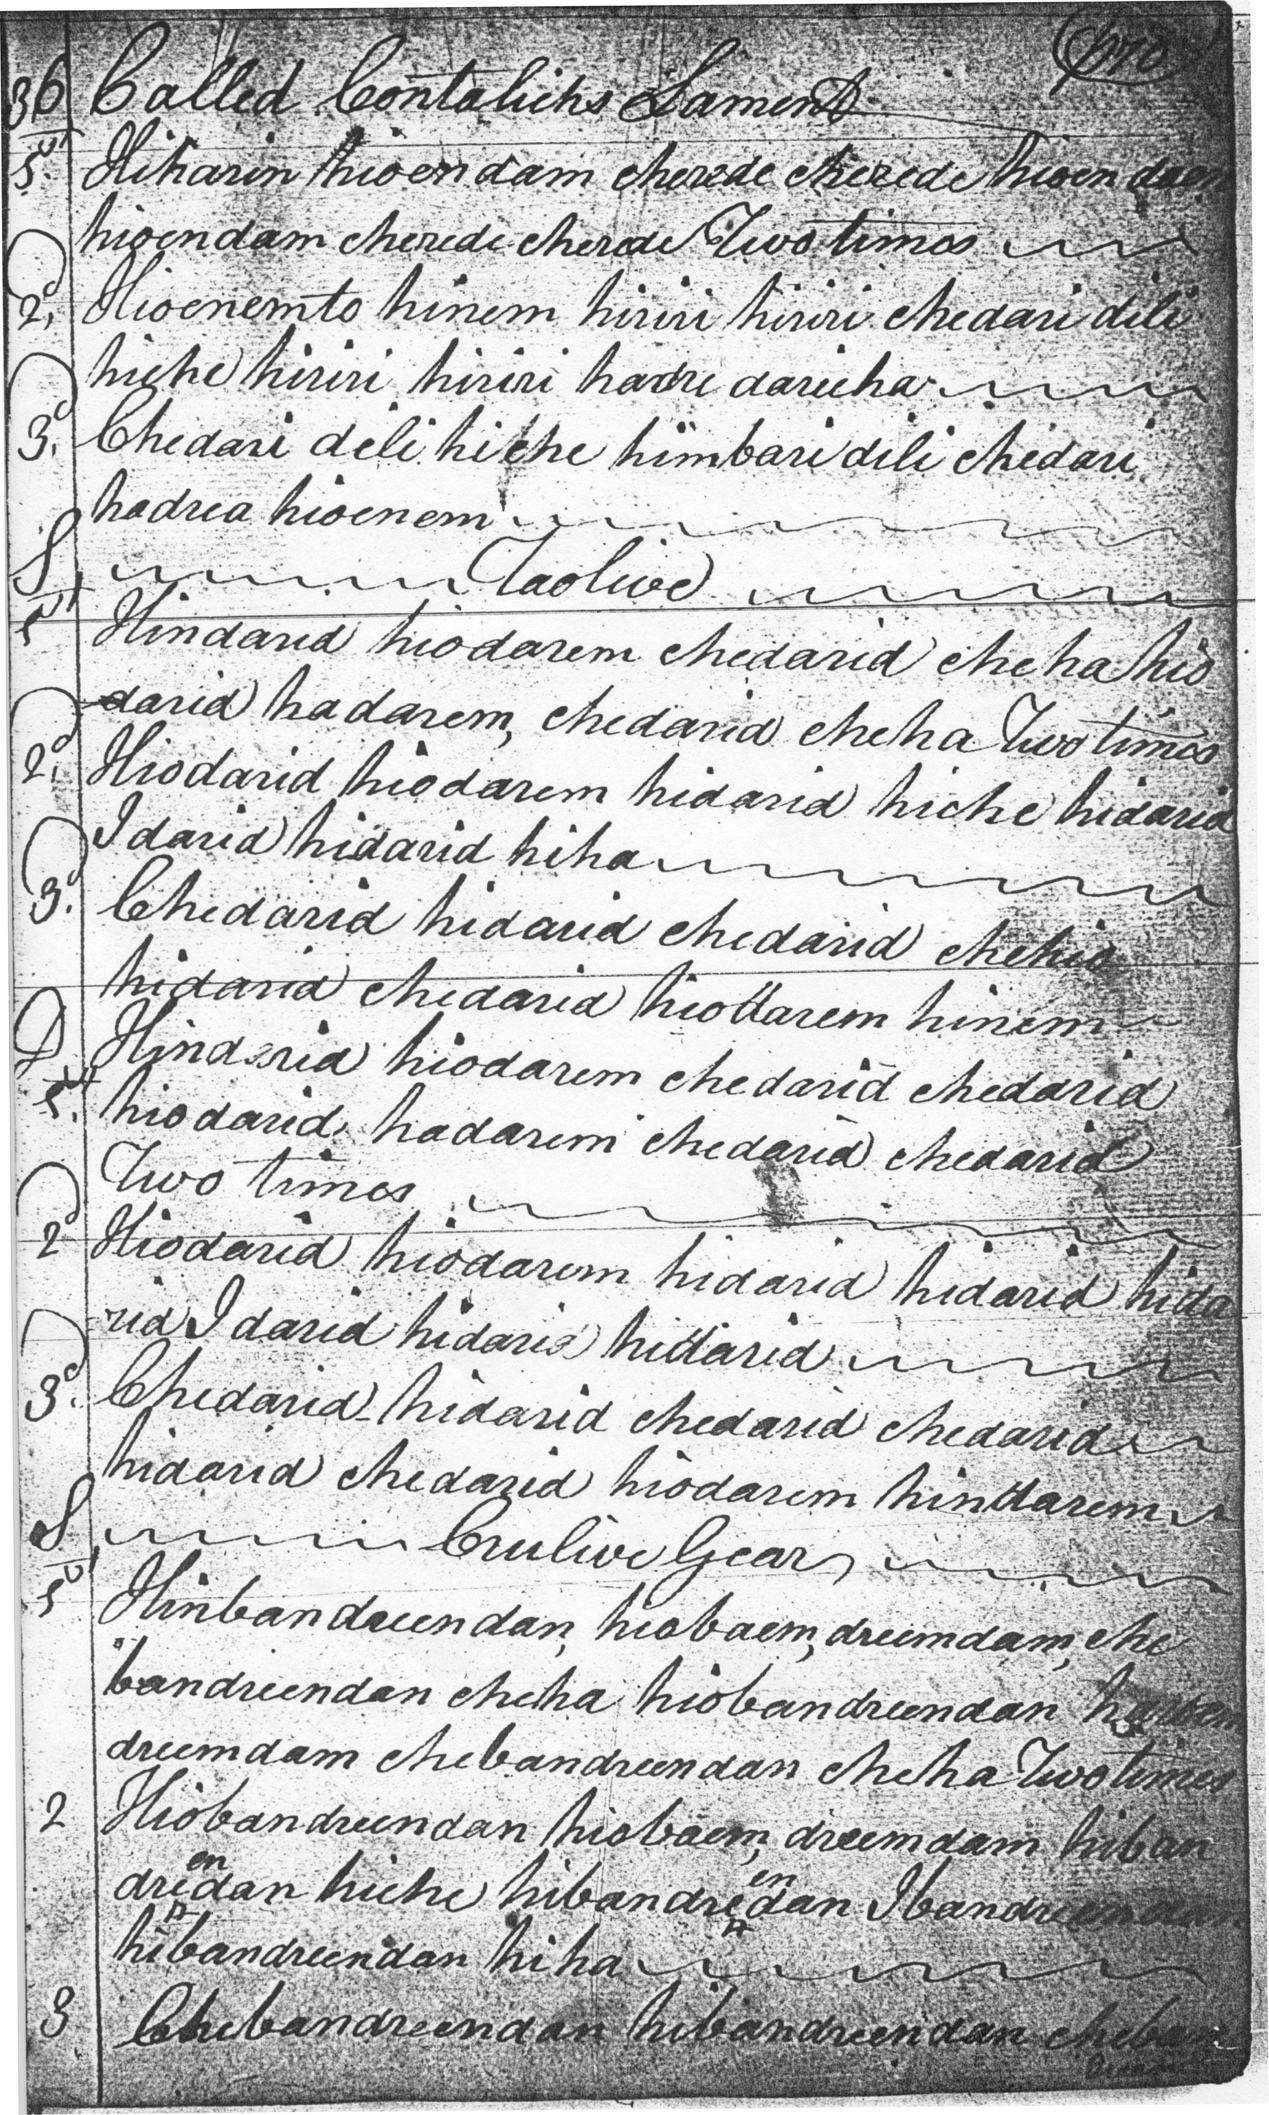 36 Called Contalichs Lament
1st Hiharin hioendam cherede cherede hioendaen
hioendam cherede cherede Two times
2d Hioenemto hinem hiriri hiriri chedari dili
hiche hiriri hiriri hadre darieha
3d Chedari dili hiche himbari dili chedari
hadrea hioenem
S Taolive
1st Hindarid hiodarem chedarid cheha hio
darid hadarem, chedarid cheha Two times
2d Hiodarid hiodarem hidarid hiche hidarid
I darid hidarid hiha
3d Chedarid hidarid chedarid chehio
hidarid chedarid hiodarem hinem
D Hindarid hiodarem chedarid chedarid
1st hiodarid, hadarem chedarid chedarid
Two times
2d Hiodarid hiodarem hidarid hidarid hida
rid I darid hidarid hidarid
3d Chedarid hidarid chedarid chedarid
hidarid chedarid hiodarem hindarem
S Crulive Gear
1st Hinbandreendan, hiobaem, dreemdam, che
bandreendan cheha hiobandreendan
dreemdam chebandreendan cheha Two times
2 Hiobandreendan hiobaem, dreemdam hiban
dreendan hiche hibandreendan
hibandreendan hiha
3 Chebandreendan hibandreendan cheban